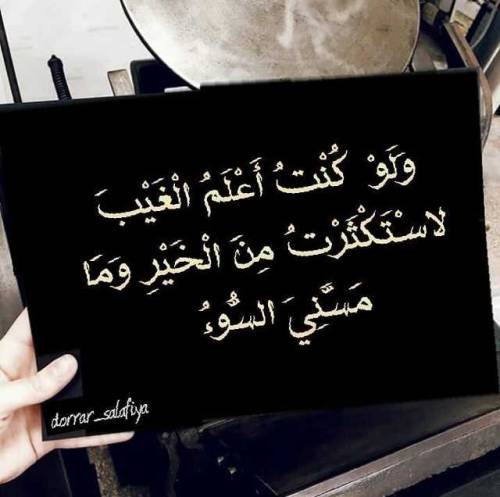 وَلَوْ كُنْتُ أَعْلَمُ الْغَيْبَ
لاسْتَكْثَرْتُ مِنَ الْخَيْرِ وَمَا
مَسَّنِيَ السُّوءُ
dorrar_salafiya